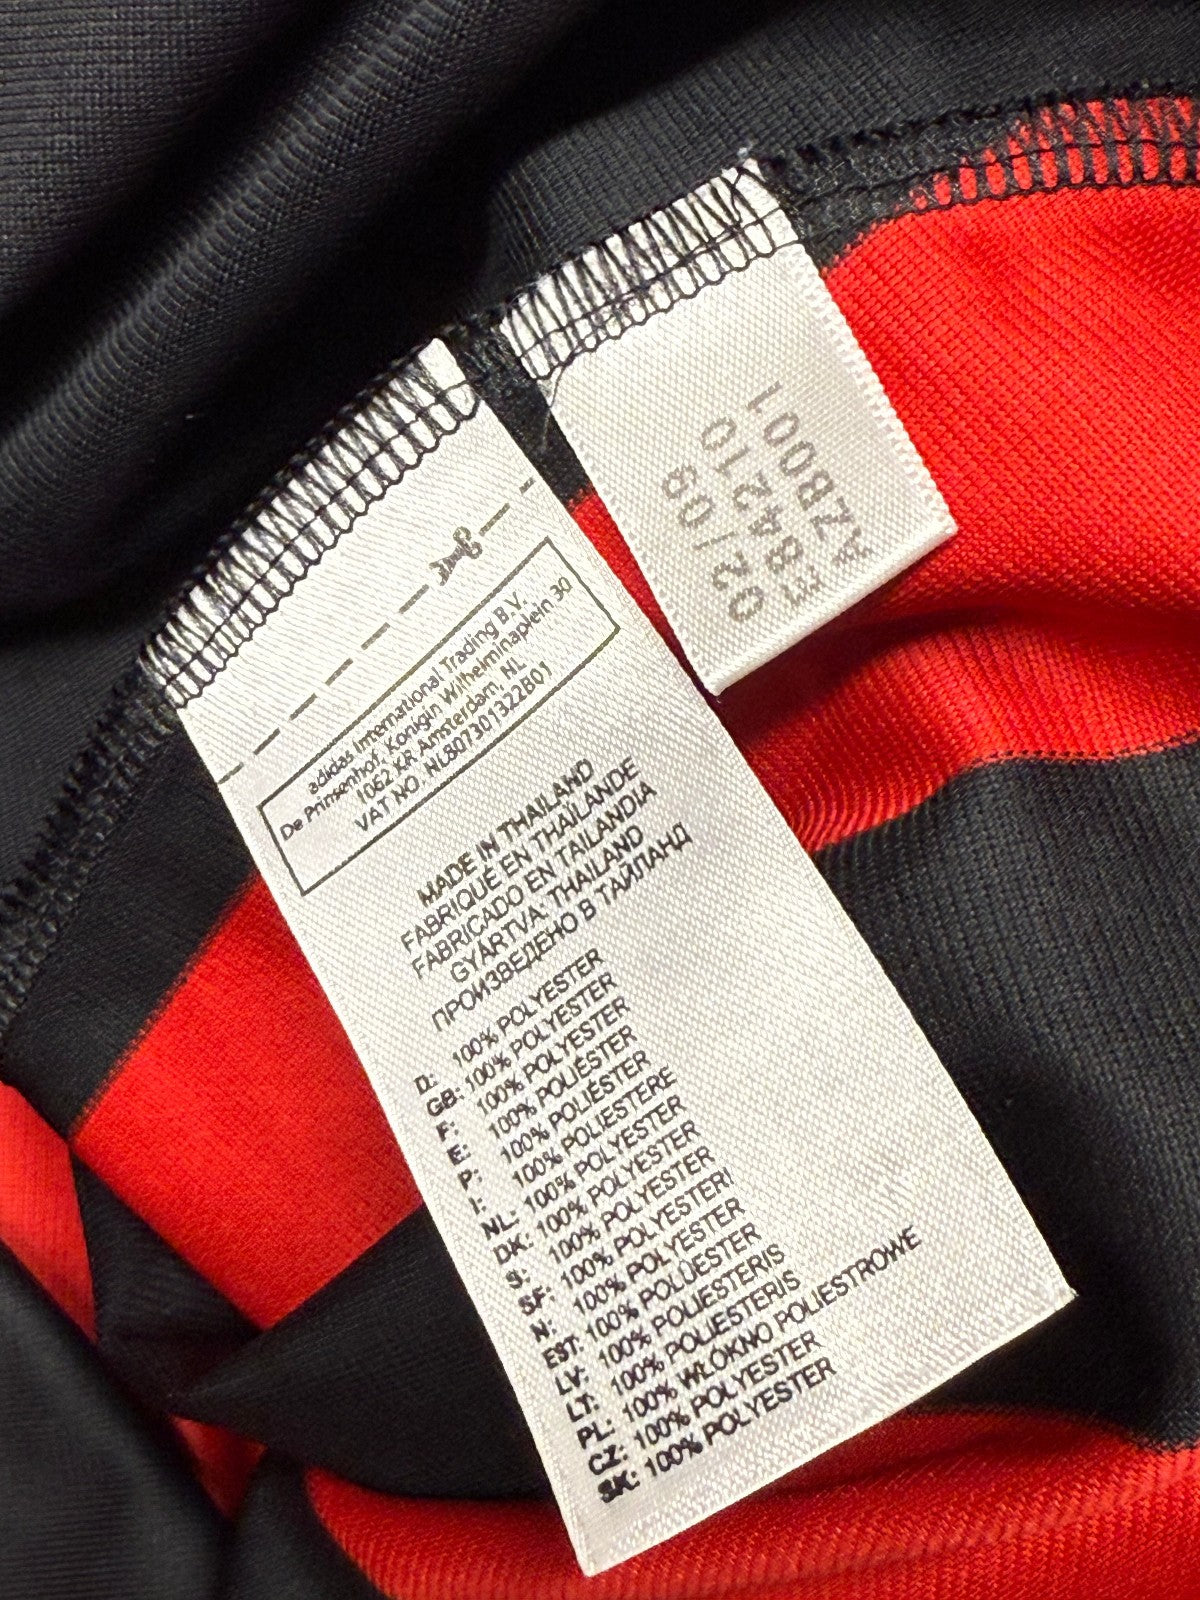 adidas International Trading B.V.
De Prinsenhof, Konigin Wilhelminaplein 30
1062 KR Amsterdam, NL
VAT NO. NL807301322B01
MADE IN THAILAND
FABRIQUÉ EN THAÏLANDE
FABRICADO EN TAILANDIA
GYÁRTVA: THAILAND
ПРОИЗВЕДЕНО В ТАЙЛАНД
D: 100% POLYESTER
GB: 100% POLYESTER
F: 100% POLYESTER
E: 100% POLIÉSTER
P: 100% POLIÉSTER
I: 100% POLIESTERE
NL: 100% POLYESTER
DK: 100% POLYESTER
S: 100% POLYESTER
SF: 100% POLYESTERI
N: 100% POLYESTER
EST: 100% POLÜESTER
LV: 100% POLIESTERIS
LT: 100% POLIESTERIS
PL: 100% WŁÓKNO POLIESTROWE
CZ: 100% POLYESTER
SK: 100% POLYESTER
02/09
E84210
AZB001